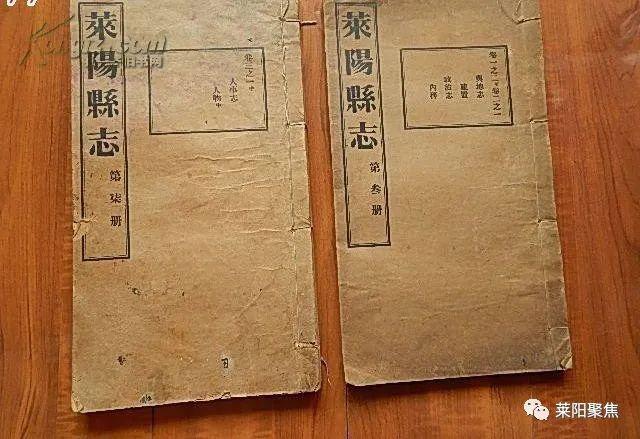 萊陽縣志
第柒册
卷三之一中
人事志
人物中
萊陽縣志
第叁册
卷一之二下卷二之一
輿地志
建置
政治志
內務
莱阳聚焦